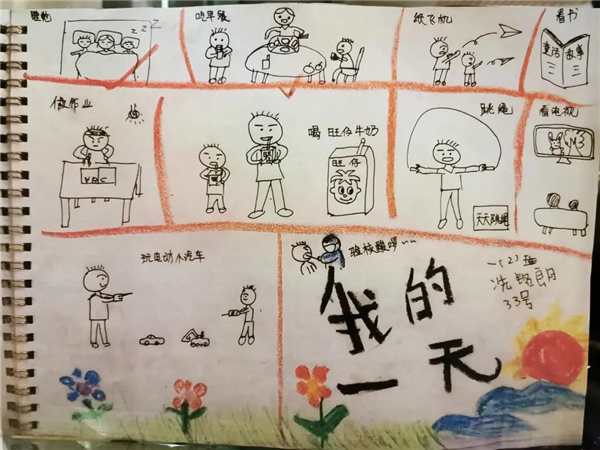 睡觉
ZZZ
吃早餐
纸飞机
看书
童话 故事
做作业
喝旺仔牛奶
旺仔
跳绳
天天跳绳
看电视
玩电动小汽车
验核酸啰~~
一(2)班
33号
我的
一天